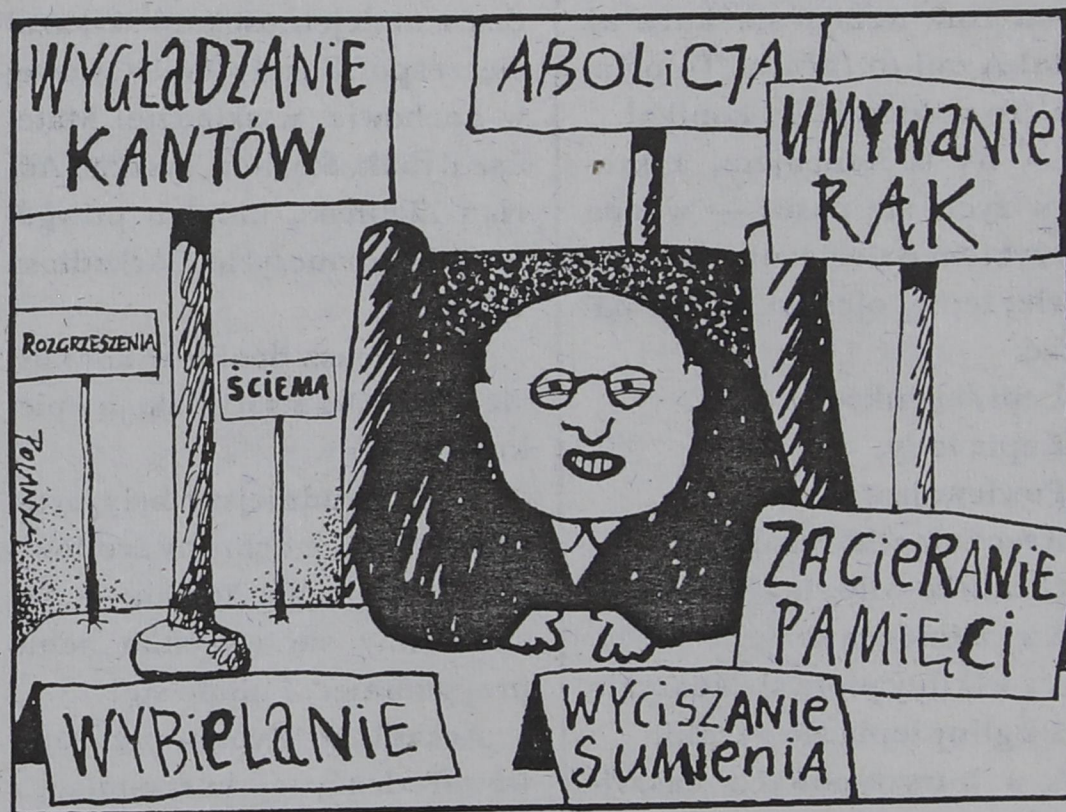 WYGŁADZANIE
KANTÓW
ABOLICJA
UMYWANIE
RĄK
ROZGRZESZENIA
ŚCIEMA
POLANNY
ZACIERANIE
PAMIĘCI
WYBIELANIE
WYCISZANIE
SUMIENIA